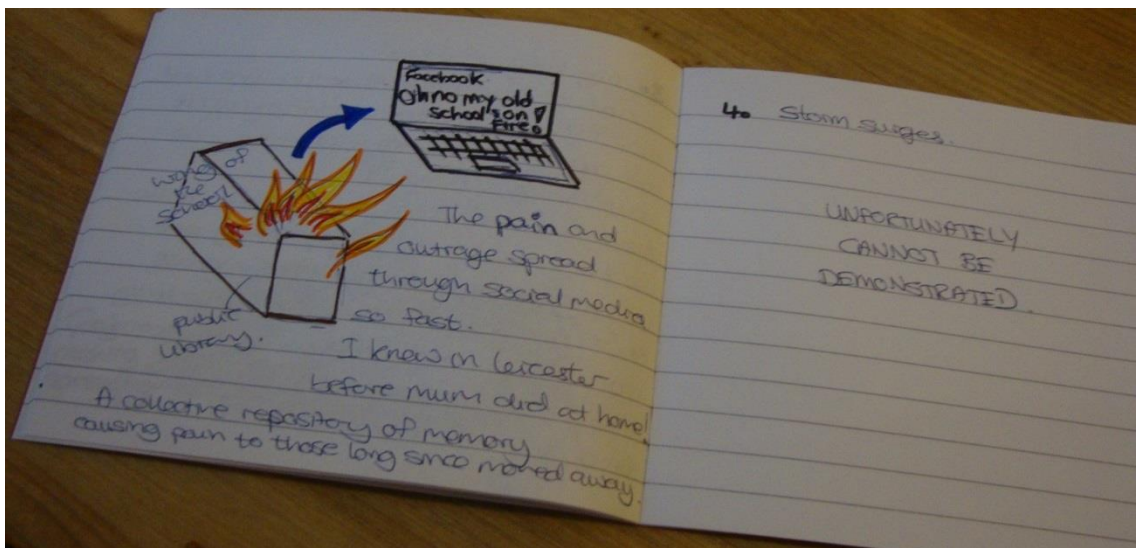 Facebook
Oh no my old
school's on
fire!
wing of
the
school
public
library.
The pain and
outrage spread
through social media
so fast.
I knew in Leicester
before mum did at home!
A collective repository of memory
causing pain to those long since moved away.
4. Storm surges.
UNFORTUNATELY
CANNOT BE
DEMONSTRATED.